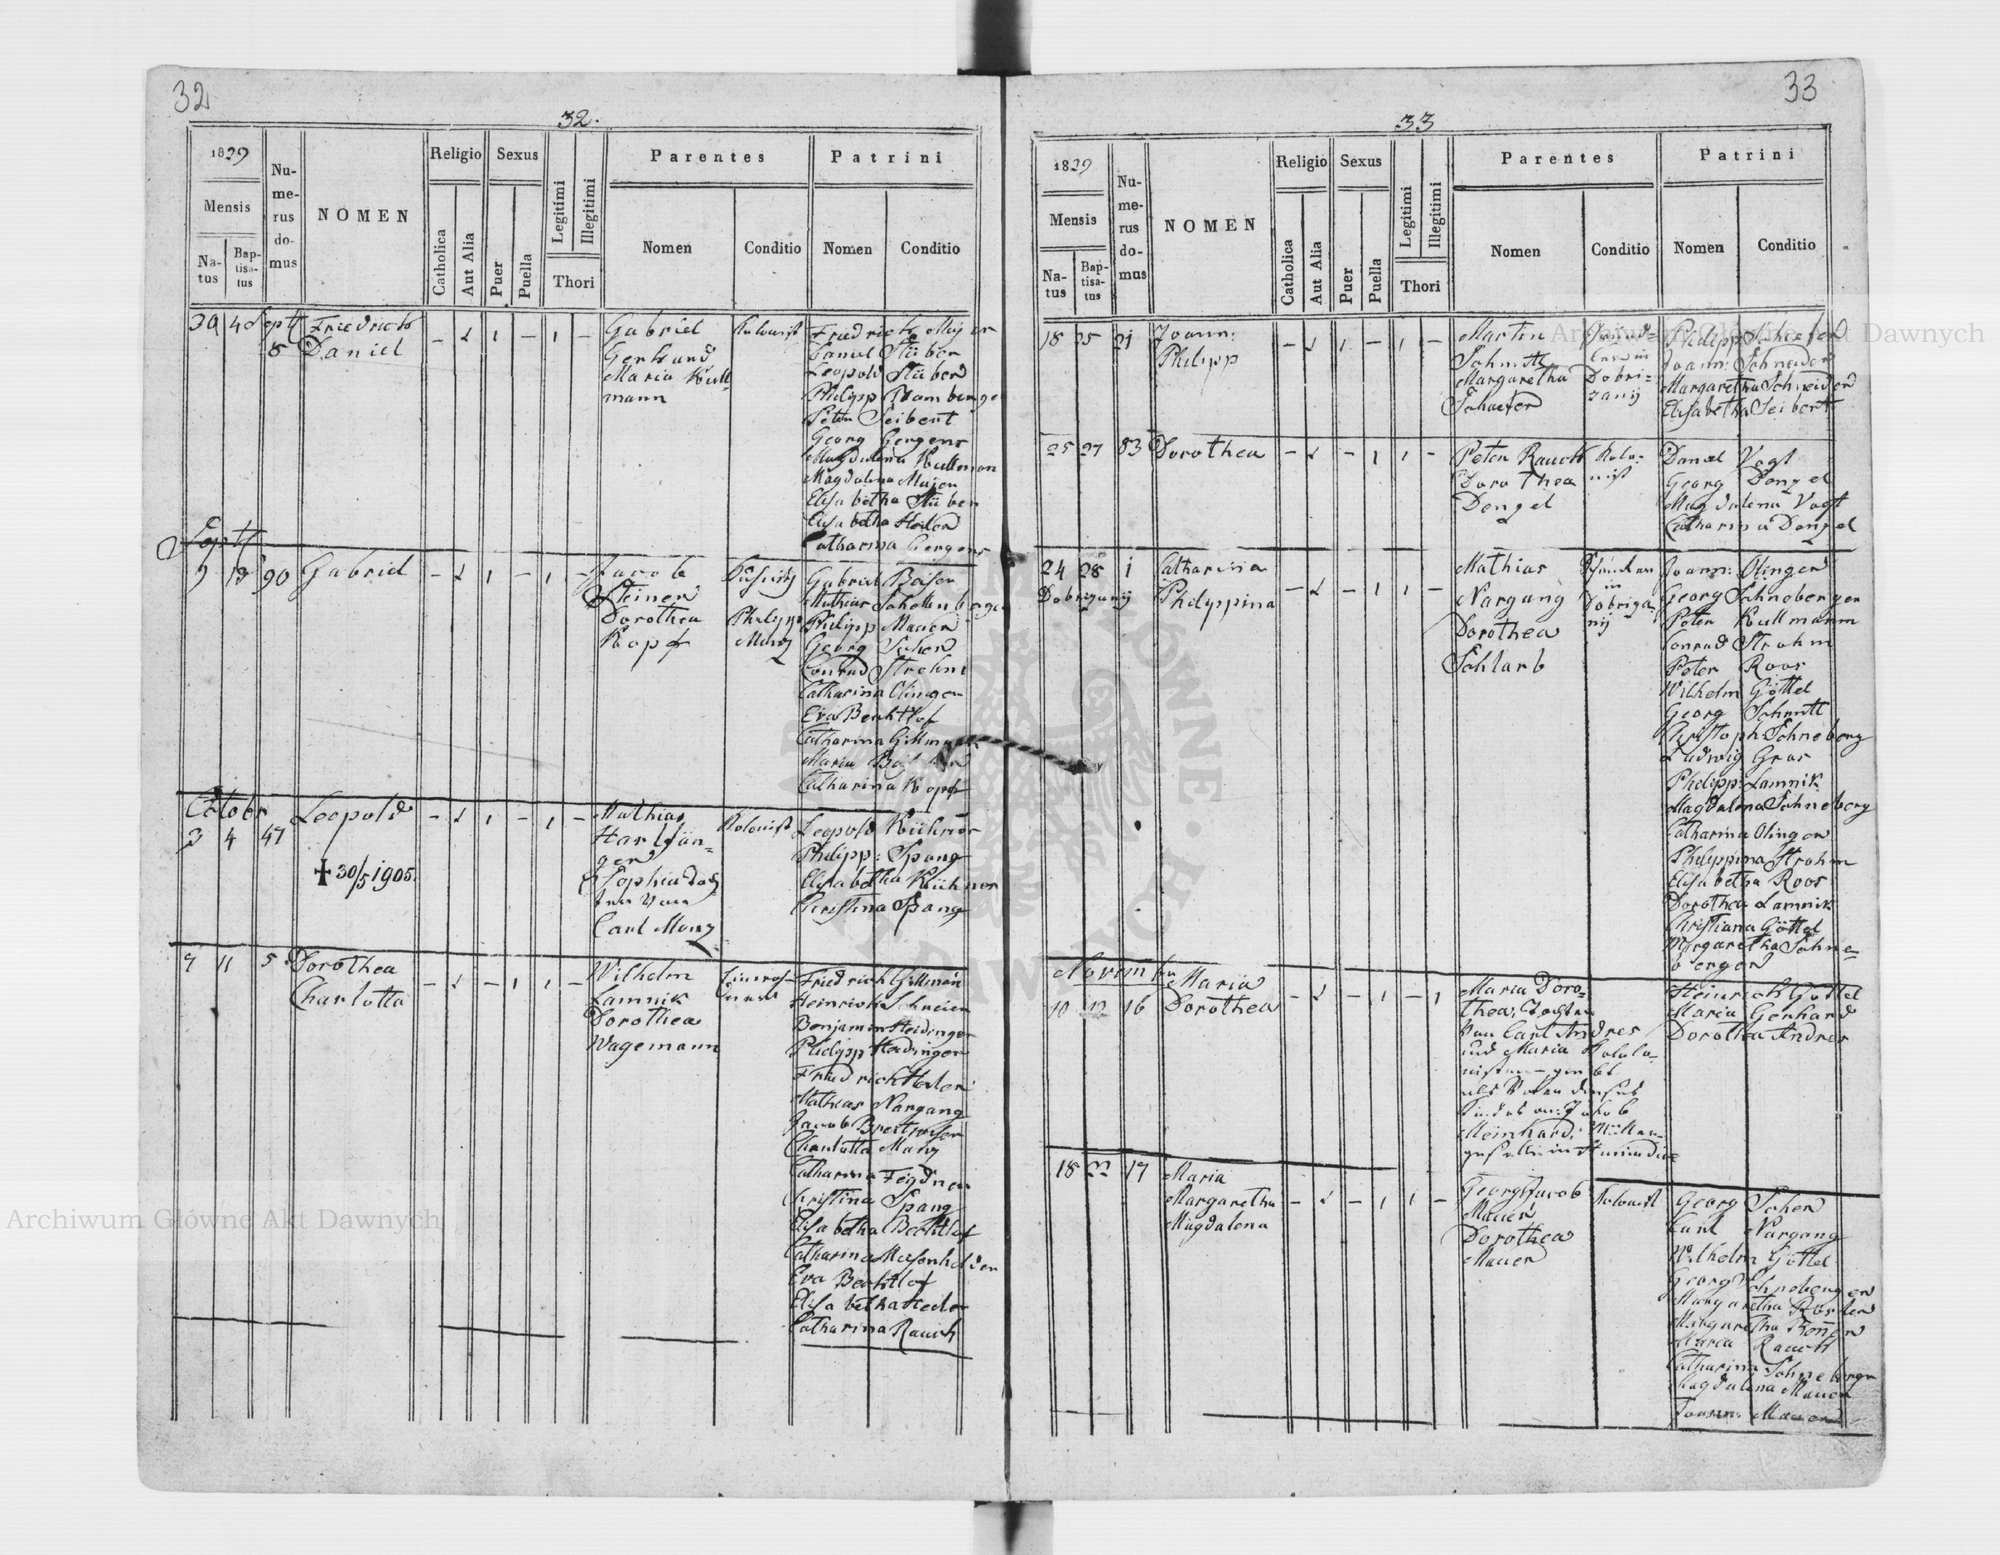 32
32.
1829
Mensis
Na-
tus
Bap-
tisa-
tus
Nu-
me-
rus
do-
mus
NOMEN
Religio
Catholica
Aut Alia
Sexus
Puer
Puella
Legitimi
Illegitimi
Thori
Parentes
Nomen
Conditio
Patrini
Nomen
Conditio
30 4 Sept
8
Friedrich
Daniel
Gabriel
Gerhard
Maria Kull
mann
Kolonist
Friedrich Majer
Daniel Stüber
Leopold Stüber
Philipp Bamberger
Peter Seibert
Georg Gergens
Magdalena Kullman
Magdalena Majer
Elisabetha Stüber
Elisabetha Heiler
Catharina Gergens
Sept
90 Gabriel
Jacob
Steiner
Dorothea
Kopf
Philipp
Gabriel Beiser
Mathias Schellenberger
Philipp Mauer
Georg Scher
Conrad Strohm
Catharina Olinger
Eva Bechtlof
Catharina Gillmann
Maria
Catharina Kopf
Octobr
3 4 47
Leopold
✝ 30/5 1905.
Mathias
Harlfän-
ger
Sophia
Carl Manz
Kolonist
Leopold Kühner
Philipp: Spang
Elisabetha Kühner
Christina Spang
7 11 5
Dorothea
Charlotta
Wilhelm
Lamnik
Dorothea
Wagemann
Friedrich Gillman
Heinrich Schreier
Benjamin Heidinger
Philipp Heidinger
Friedrich Heiler
Mathias Nargang
Jacob
Charlotta Manz
Catharina
Christina Spang
Elisabetha Bechtlof
Catharina
Eva Bechtlof
Elisabetha Heiler
Catharina Rauch
33
33
1829
Mensis
Na-
tus
Bap-
tisa-
tus
Nu-
me-
rus
do-
mus
NOMEN
Religio
Catholica
Aut Alia
Sexus
Puer
Puella
Legitimi
Illegitimi
Thori
Parentes
Nomen
Conditio
Patrini
Nomen
Conditio
18 25 21
Joann:
Philipp
Martin
Schmitt
Margaretha
Schaefer
Dobri-
zanij
Philipp Schaefer
Joann: Schneider
Margaretha Schneider
Elisabetha Seibert
25 27 83 Dorothea
Peter Rauch
Dorothea
Dengel
Kolo-
nist
Daniel Vogt
Georg Dengel
Magdalena Vogt
Catharina Dengel
24 28 1
Dobrzanij
Catharina
Philippina
Mathias
Nargang
Dorothea
Schlarb
in
Dobriza-
nij
Joann: Olinger
Georg Schneberger
Peter Kullmann
Conrad Strohm
Peter Roos
Wilhelm Göttel
Georg Schmitt
Christoph Schneberg
Ludwig Gros
Philipp: Lamnik
Magdalena Schneberg
Catharina Olinger
Philippina Strohm
Elisabetha Roos
Dorothea Lamnik
Christiana Göttel
Margaretha Schne-
berger
Novembr
10 12 16
Maria
Dorothea
Maria Doro-
thea, Tochter
von Carl Andres
und Maria Kolo-
nisten
als Vater dieses
Kindes an: Jakob
Meinhard: Müller-
Heinrich Göttel
Maria Gerhard
Dorothea Andres
18 22 17
Maria
Margaretha
Magdalena
Georg Jacob
Mauer
Dorothea
Mauer
Kolonist
Georg Scher
Carl Nargang
Wilhelm Göttel
Georg Schneberger
Margaretha
Margaretha
Maria Rauch
Catharina Schneberger
Magdalena Mauer
Joann: Mauer
Archiwum Główne Akt Dawnych
Archiwum Główne Akt Dawnych